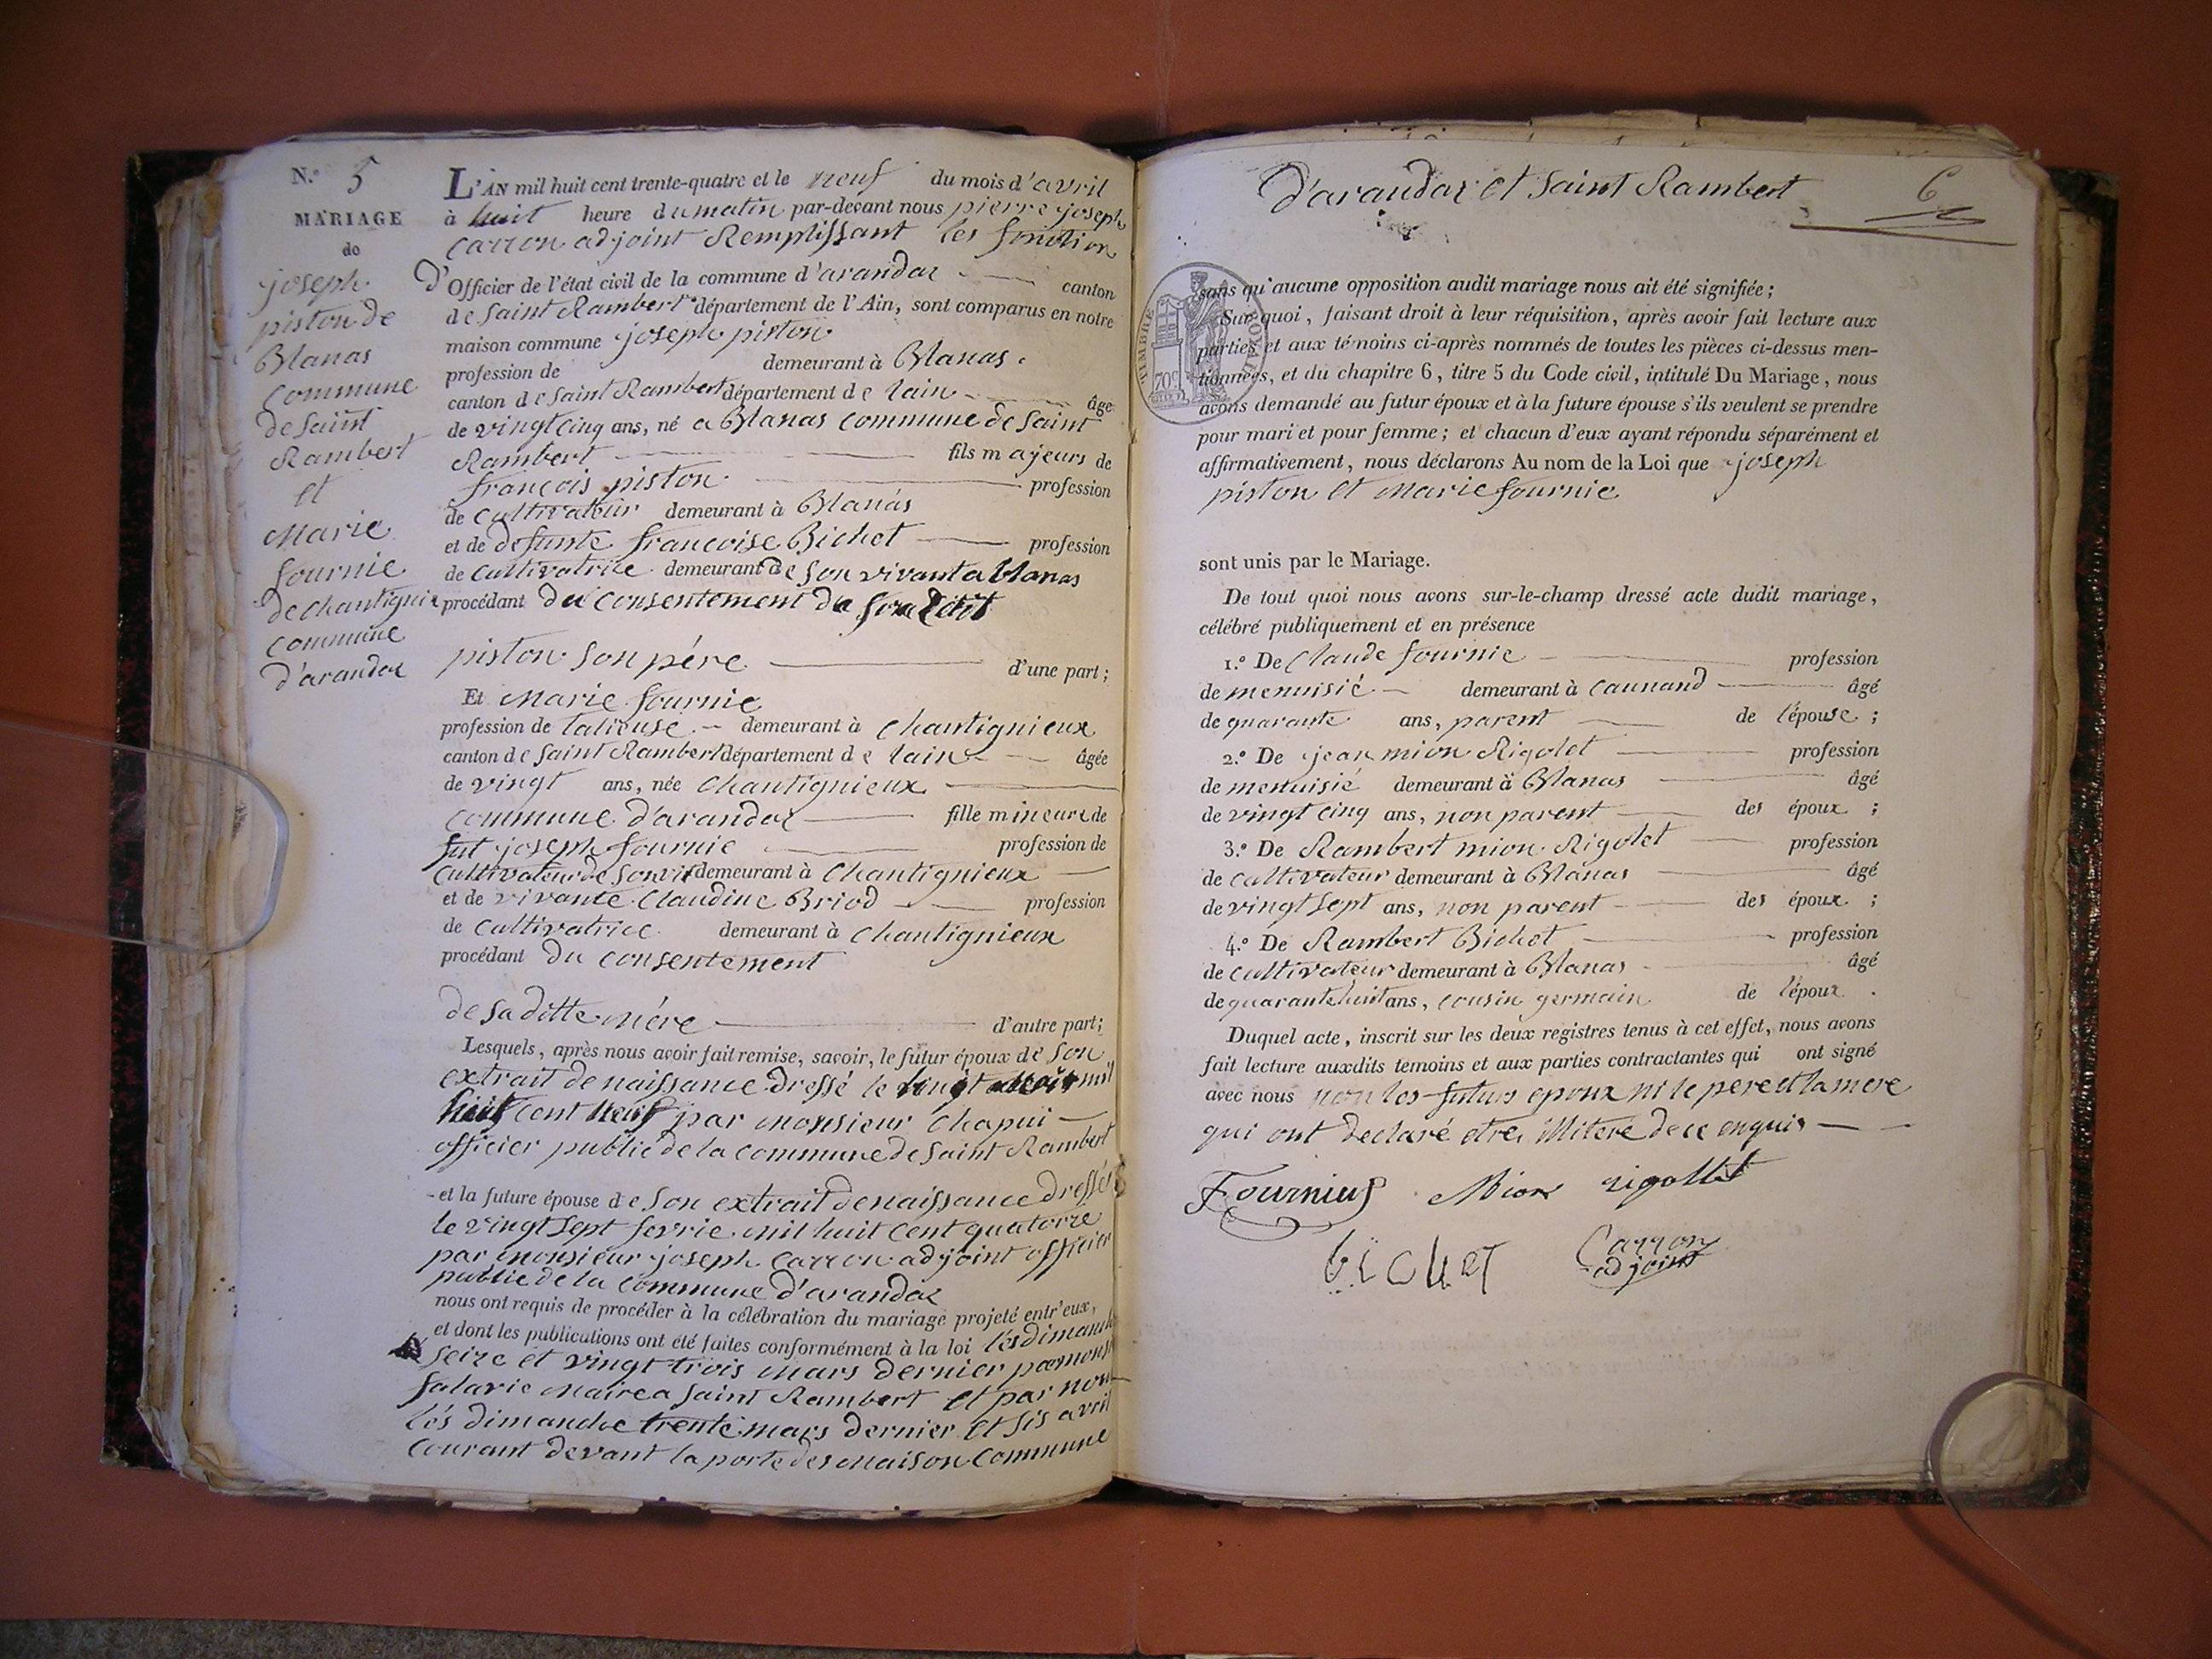 N.º 5
MARIAGE
de
joseph
piston de
Blanas
commune
de saint
Rambert
et
Marie
fournie
de chantignie
commune
d'arandas
L'AN mil huit cent trente-quatre et le neuf du mois d'avril
à huit heure du matin par-devant nous pierre joseph
carron adjoint Remplissant les fonction
d'Officier de l'état civil de la commune d'arandas canton
de saint Rambert département de l'Ain, sont comparus en notre
maison commune joseph piston
profession de demeurant à Blanas
canton de saint Rambert département de lain âge
de vingt cinq ans, né a Blanas commune de saint
Rambert fils majeurs de
françois piston profession
de cultivateur demeurant à Blanas
et de defunte francoise Bichet profession
de cultivatrice demeurant de son vivant a blanas
procédant du consentement de son dit
piston son père d'une part;
Et Marie fournie
profession de talieuse demeurant à chantignieux
canton de saint Rambert département de lain âgée
de vingt ans, née chantignieux
commune d'arandas fille mineure de
fut joseph fournie profession de
cultivateur de son vit demeurant à chantignieux
et de vivante claudine Briod profession
de cultivatrice demeurant à chantignieux
procédant du consentement
de sa ditte mére d'autre part;
Lesquels, après nous avoir fait remise, savoir, le futur époux de son
extrait de naissance dressé le vingt mil
huit cent neuf par monsieur chapui
officier public de la commune de saint Rambert
et la future épouse de son extrait de naissance dressés
le vingt sept fevrie mil huit cent quatorze
par monsieur joseph carron adjoint officier
public de la commune d'arandas
nous ont requis de procéder à la célébration du mariage projeté entr'eux,
et dont les publications ont été faites conformément à la loi lés dimanche
seize et vingt trois mars dernier par
salavie maire a saint Rambert et par nou
lés dimanche trente mars dernier et sis avril
courant devant la porte des maison commune
d'arandas et saint Rambert 6
sans qu'aucune opposition audit mariage nous ait été signifiée;
Sur quoi, faisant droit à leur réquisition, après avoir fait lecture aux
parties et aux témoins ci-après nommés de toutes les pièces ci-dessus men-
tionnées, et du chapitre 6, titre 5 du Code civil, intitulé Du Mariage, nous
avons demandé au futur époux et à la future épouse s'ils veulent se prendre
pour mari et pour femme; et chacun d'eux ayant répondu séparément et
affirmativement, nous déclarons Au nom de la Loi que joseph
piston et Marie fournie
TIMBRE ROYAL
70c
sont unis par le Mariage.
De tout quoi nous avons sur-le-champ dressé acte dudit mariage,
célébré publiquement et en présence
1.º De claude fournie profession
de menuisié demeurant à caunand âgé
de quarante ans, parent de lépouse;
2.º De jean mion Rigolet profession
de menuisié demeurant à Blanas âgé
de vingt cinq ans, non parent des époux;
3.º De Rambert mion Rigolet profession
de cultivateur demeurant à Blanas âgé
de vingt sept ans, non parent des époux;
4.º De Rambert Bichet profession
de cultivateur demeurant à Blanas âgé
de quarante huit ans, cousin germain de lépoux.
Duquel acte, inscrit sur les deux registres tenus à cet effet, nous avons
fait lecture auxdits temoins et aux parties contractantes qui ont signé
avec nous non les futurs epoux ni le pere et la mere
qui ont declaré etre illitere de ce enquis
Fournier Mion rigollet
bichet Carron
adjoint